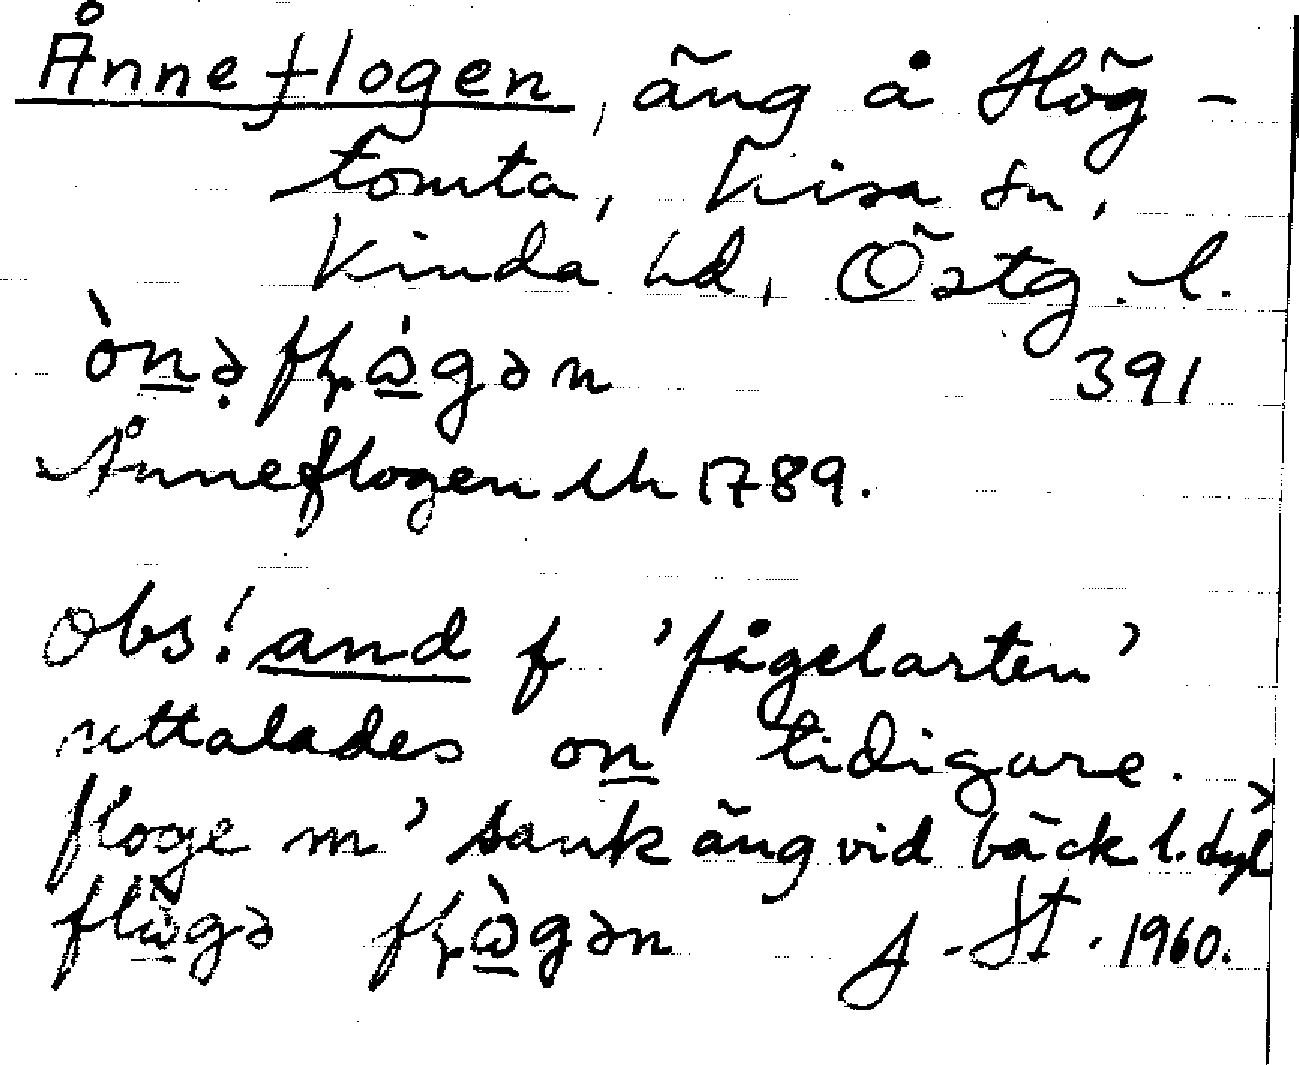 Ånneflogen, äng å Hög-
tomta, Kisa sn,
Kinda hd, Östg. l.
ònə flωgən 391
Ånneflogen lh 1789.
Obs! and f 'fågelarten'
uttalades on tidigare.
floge m 'sank äng vid bäck l. dyl'
flωgə flωgən J-St. 1960.